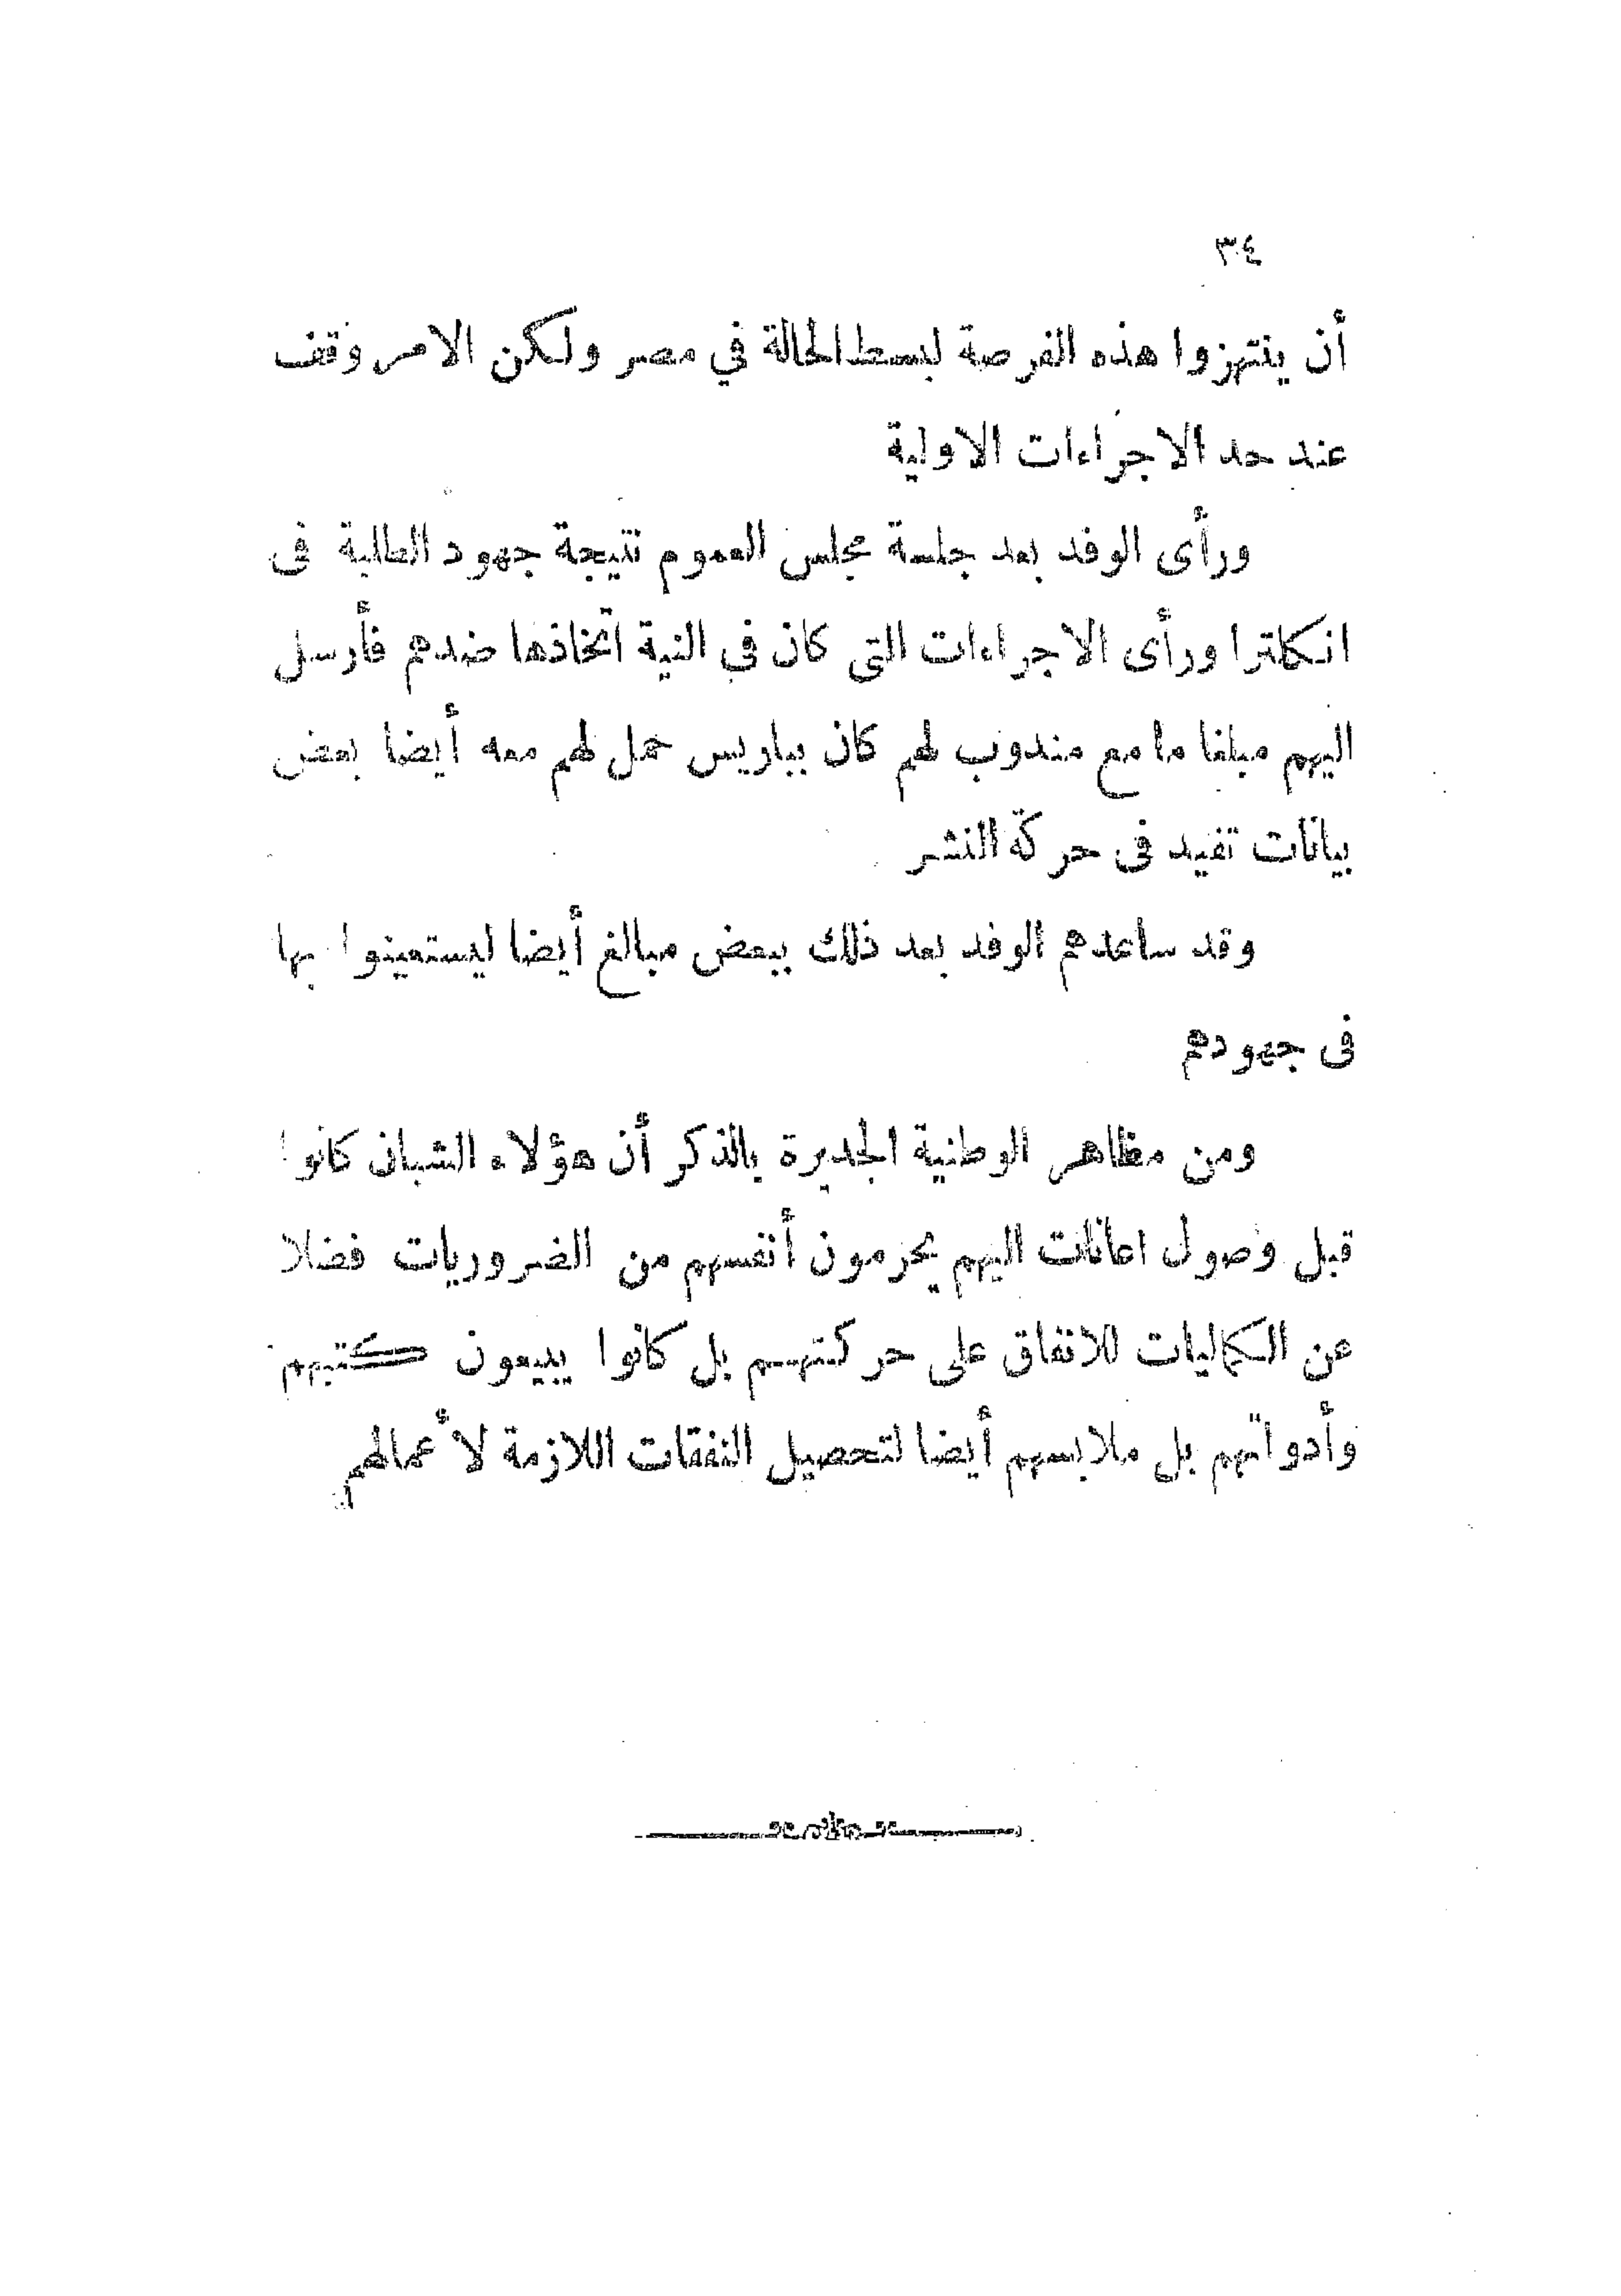 ٣٤
أن ينتهزوا هذه الفرصة لبسط الحالة في مصر ولكن الامر وقف
عند حد الاجراءات الاولية
ورأى الوفد بعد جلسة مجلس العموم نتيجة جهود الطلبة فى
انكلترا ورأى الاجراءات التى كان في النية اتخاذها ضدهم فأرسل
اليهم مبلغا ما مع مندوب لهم كان بباريس حمل لهم معه أيضا بعض
بيانات تفيد فى حركة النشر
وقد ساعدهم الوفد بعد ذلك ببعض مبالغ أيضا ليستعينوا بها
فى جهودهم
ومن مظاهر الوطنية الجديرة بالذكر أن هؤلاء الشبان كانوا
قبل وصول اعانات اليهم يحرمون أنفسهم من الضروريات فضلا
عن الكماليات للانفاق على حركتهم بل كانوا يبيعون كتبهم
وأدواتهم بل ملابسهم أيضا لتحصيل النفقات اللازمة لأعمالهم